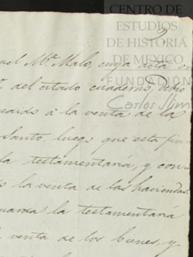 CENTRO DE
ESTUDIOS
DE HISTORIA
DE MÉXICO
FUNDACIÓN
Carlos Slim
el Mª. Malo, cuya
del citado cuaderno,
á la venta de la
Santo, luego que esta
la testamentaría, y con
la venta de las haciendas
la testamentaria
venta de los bienes, y